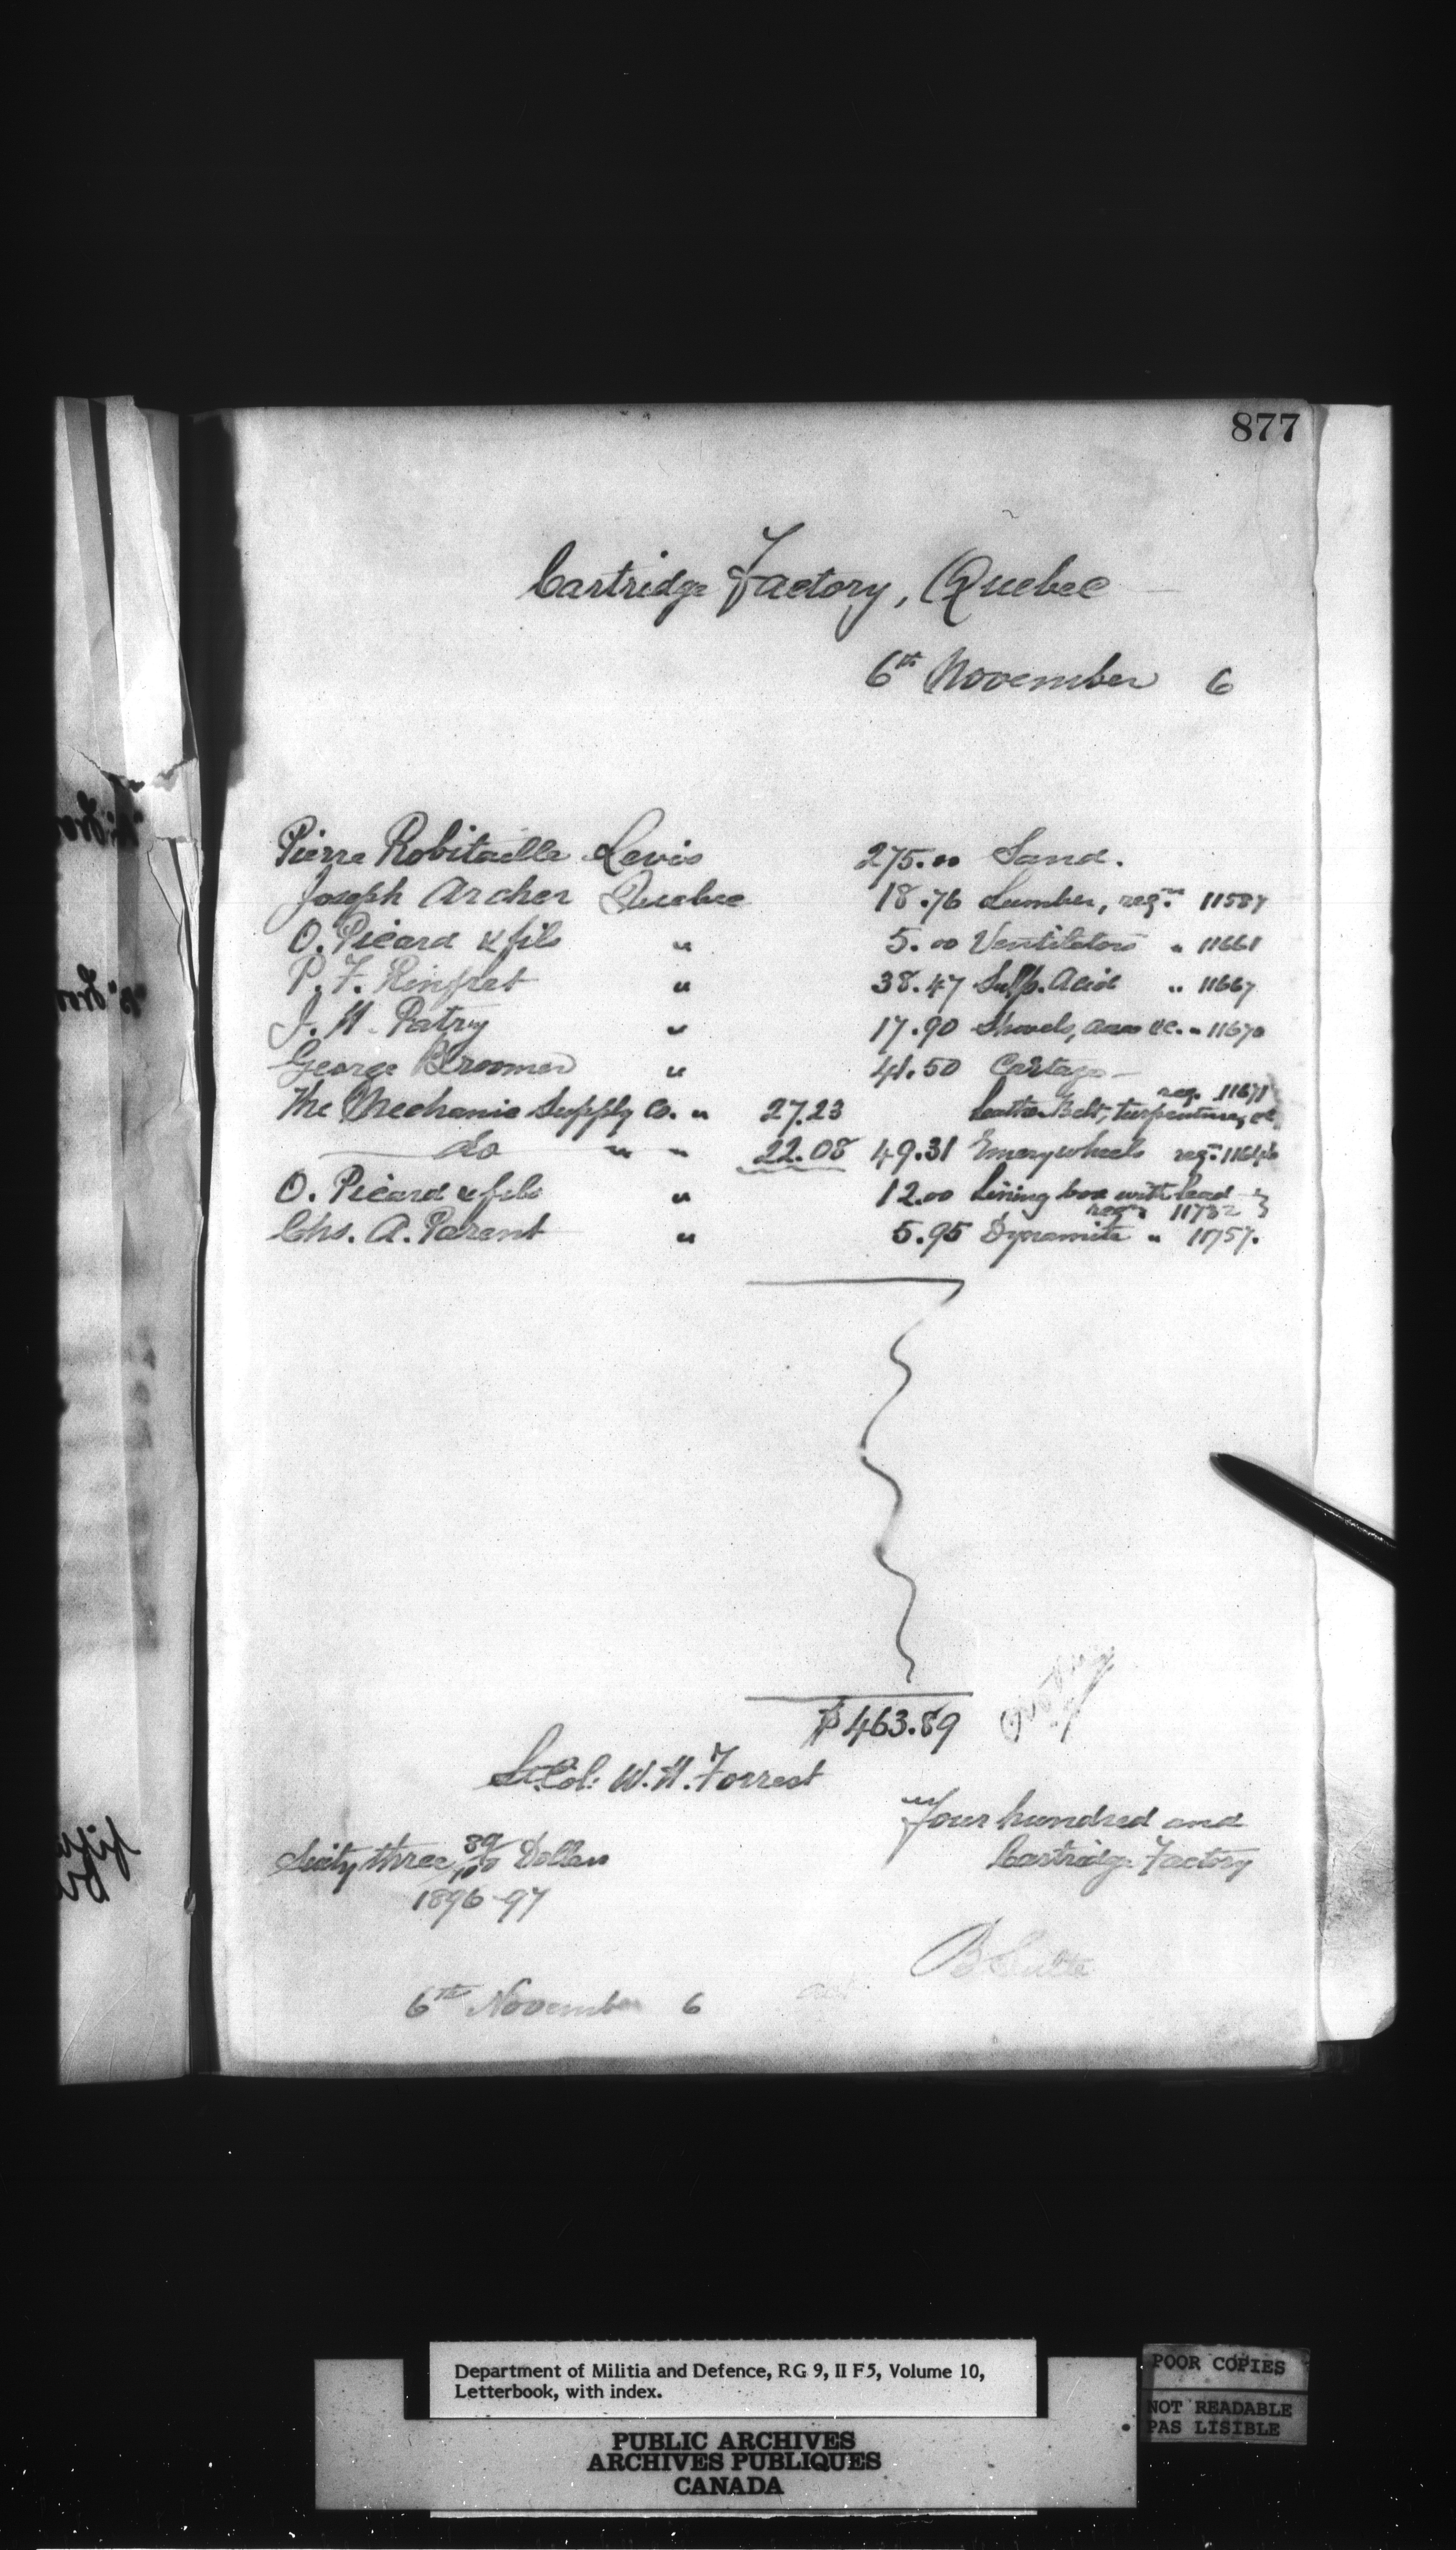 877
Cartridge Factory, Quebec
6th November 6
Pierre Robitaille Levis 275.00 Sand.
Joseph Archer Quebec 18.76 Lumber, reqn 11587
O. Picard & fils " 5.00 Ventilators " 11661
P. F. Rinfret " 38.47 Sulp. Acid " 11667
J. H. Patry " 17.90 Shovels, &c. " 11670
George Broomer " 41.50 Cartage
req. 11671
The Mechanic Supply Co. " 27.23 Leather Belt, turpentine, &c
do " " 22.08 49.31 Emery wheels reqn 11646
O. Picard & fils " 12.00 Lining box with lead
reqn 11732
Chs. A. Parent " 5.95 Dynamite " 11757.
$463.89
Lt. Col: W. H. Forrest
Four hundred and
Sixty three 89/100 Dollars Cartridge Factory
1896-97
B Sulte
6th November 6 act.
Department of Militia and Defence, RG 9, II F5, Volume 10,
Letterbook, with index.
PUBLIC ARCHIVES
ARCHIVES PUBLIQUES
CANADA
POOR COPIES
NOT READABLE
PAS LISIBLE